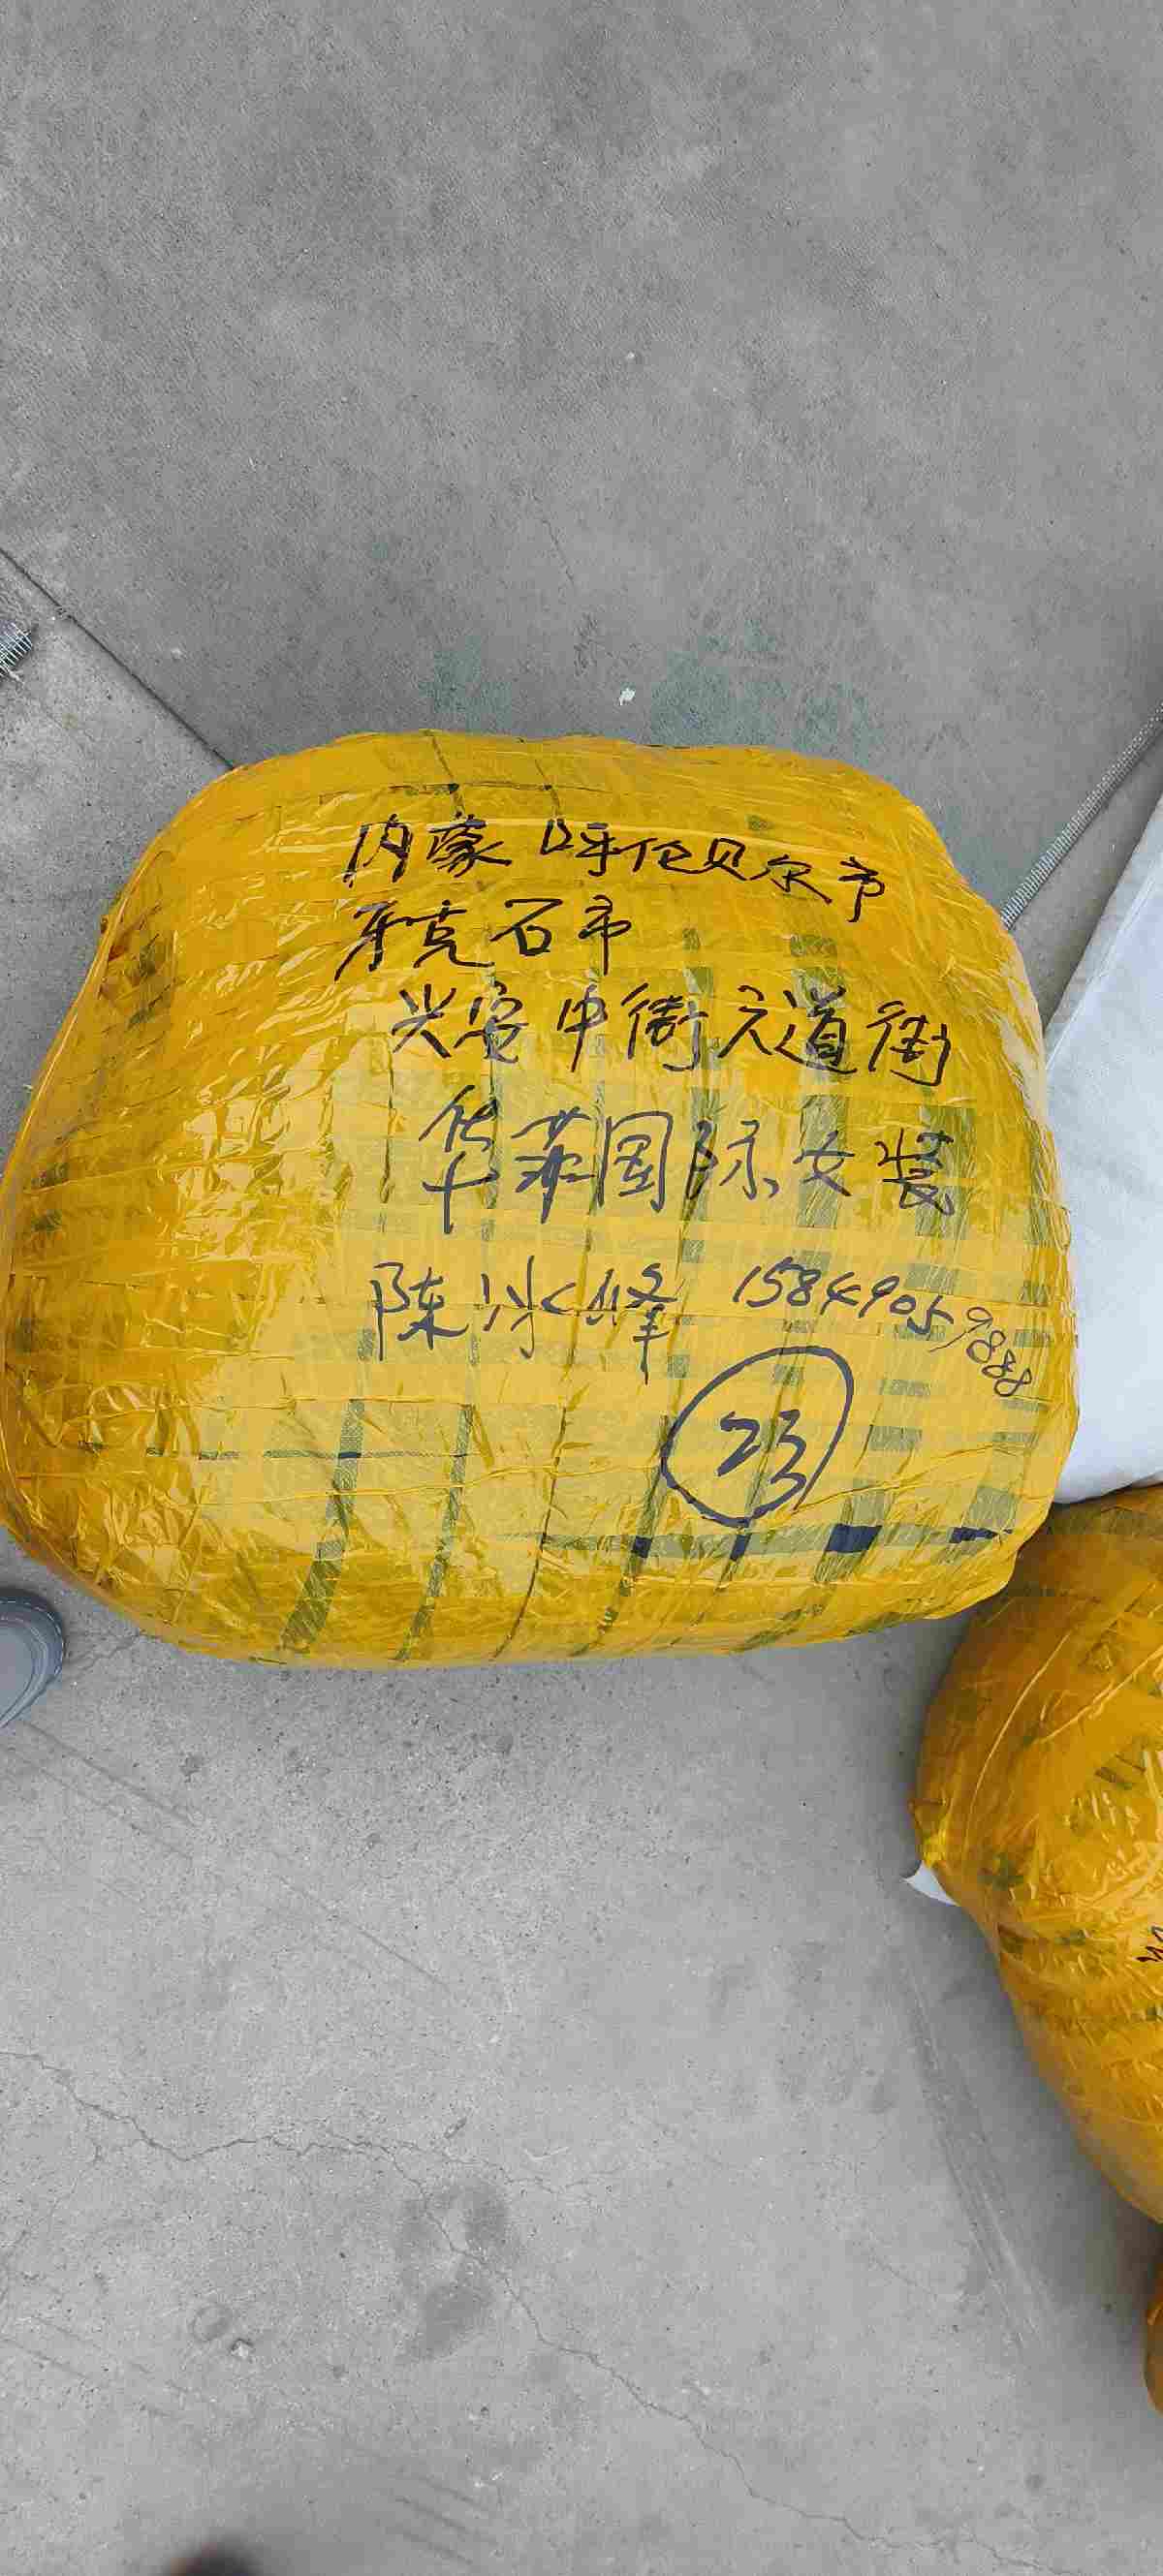 内蒙 呼伦贝尔市
牙克石市
兴安中街六道街
华菲国际女装
陈冰峰 15849059888
23